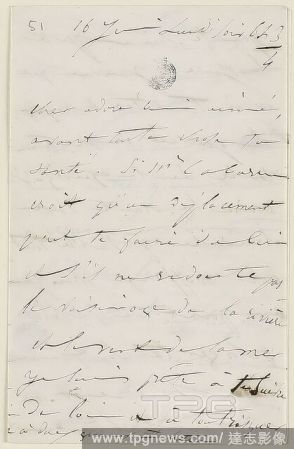 51 16 Juin Lundi soir 6h 3/4
cher adoré bien aimé,
avant toute chose ta
santé. Si Mr
croit qu'un déplacement
peut te faire du bien
et s'il ne redoute pas
le voisinage de la rivière
et le vent de la mer
je suis prête à te suivre
de loin et à tout risque
TPG
www.tpgnews.com / 達志影像